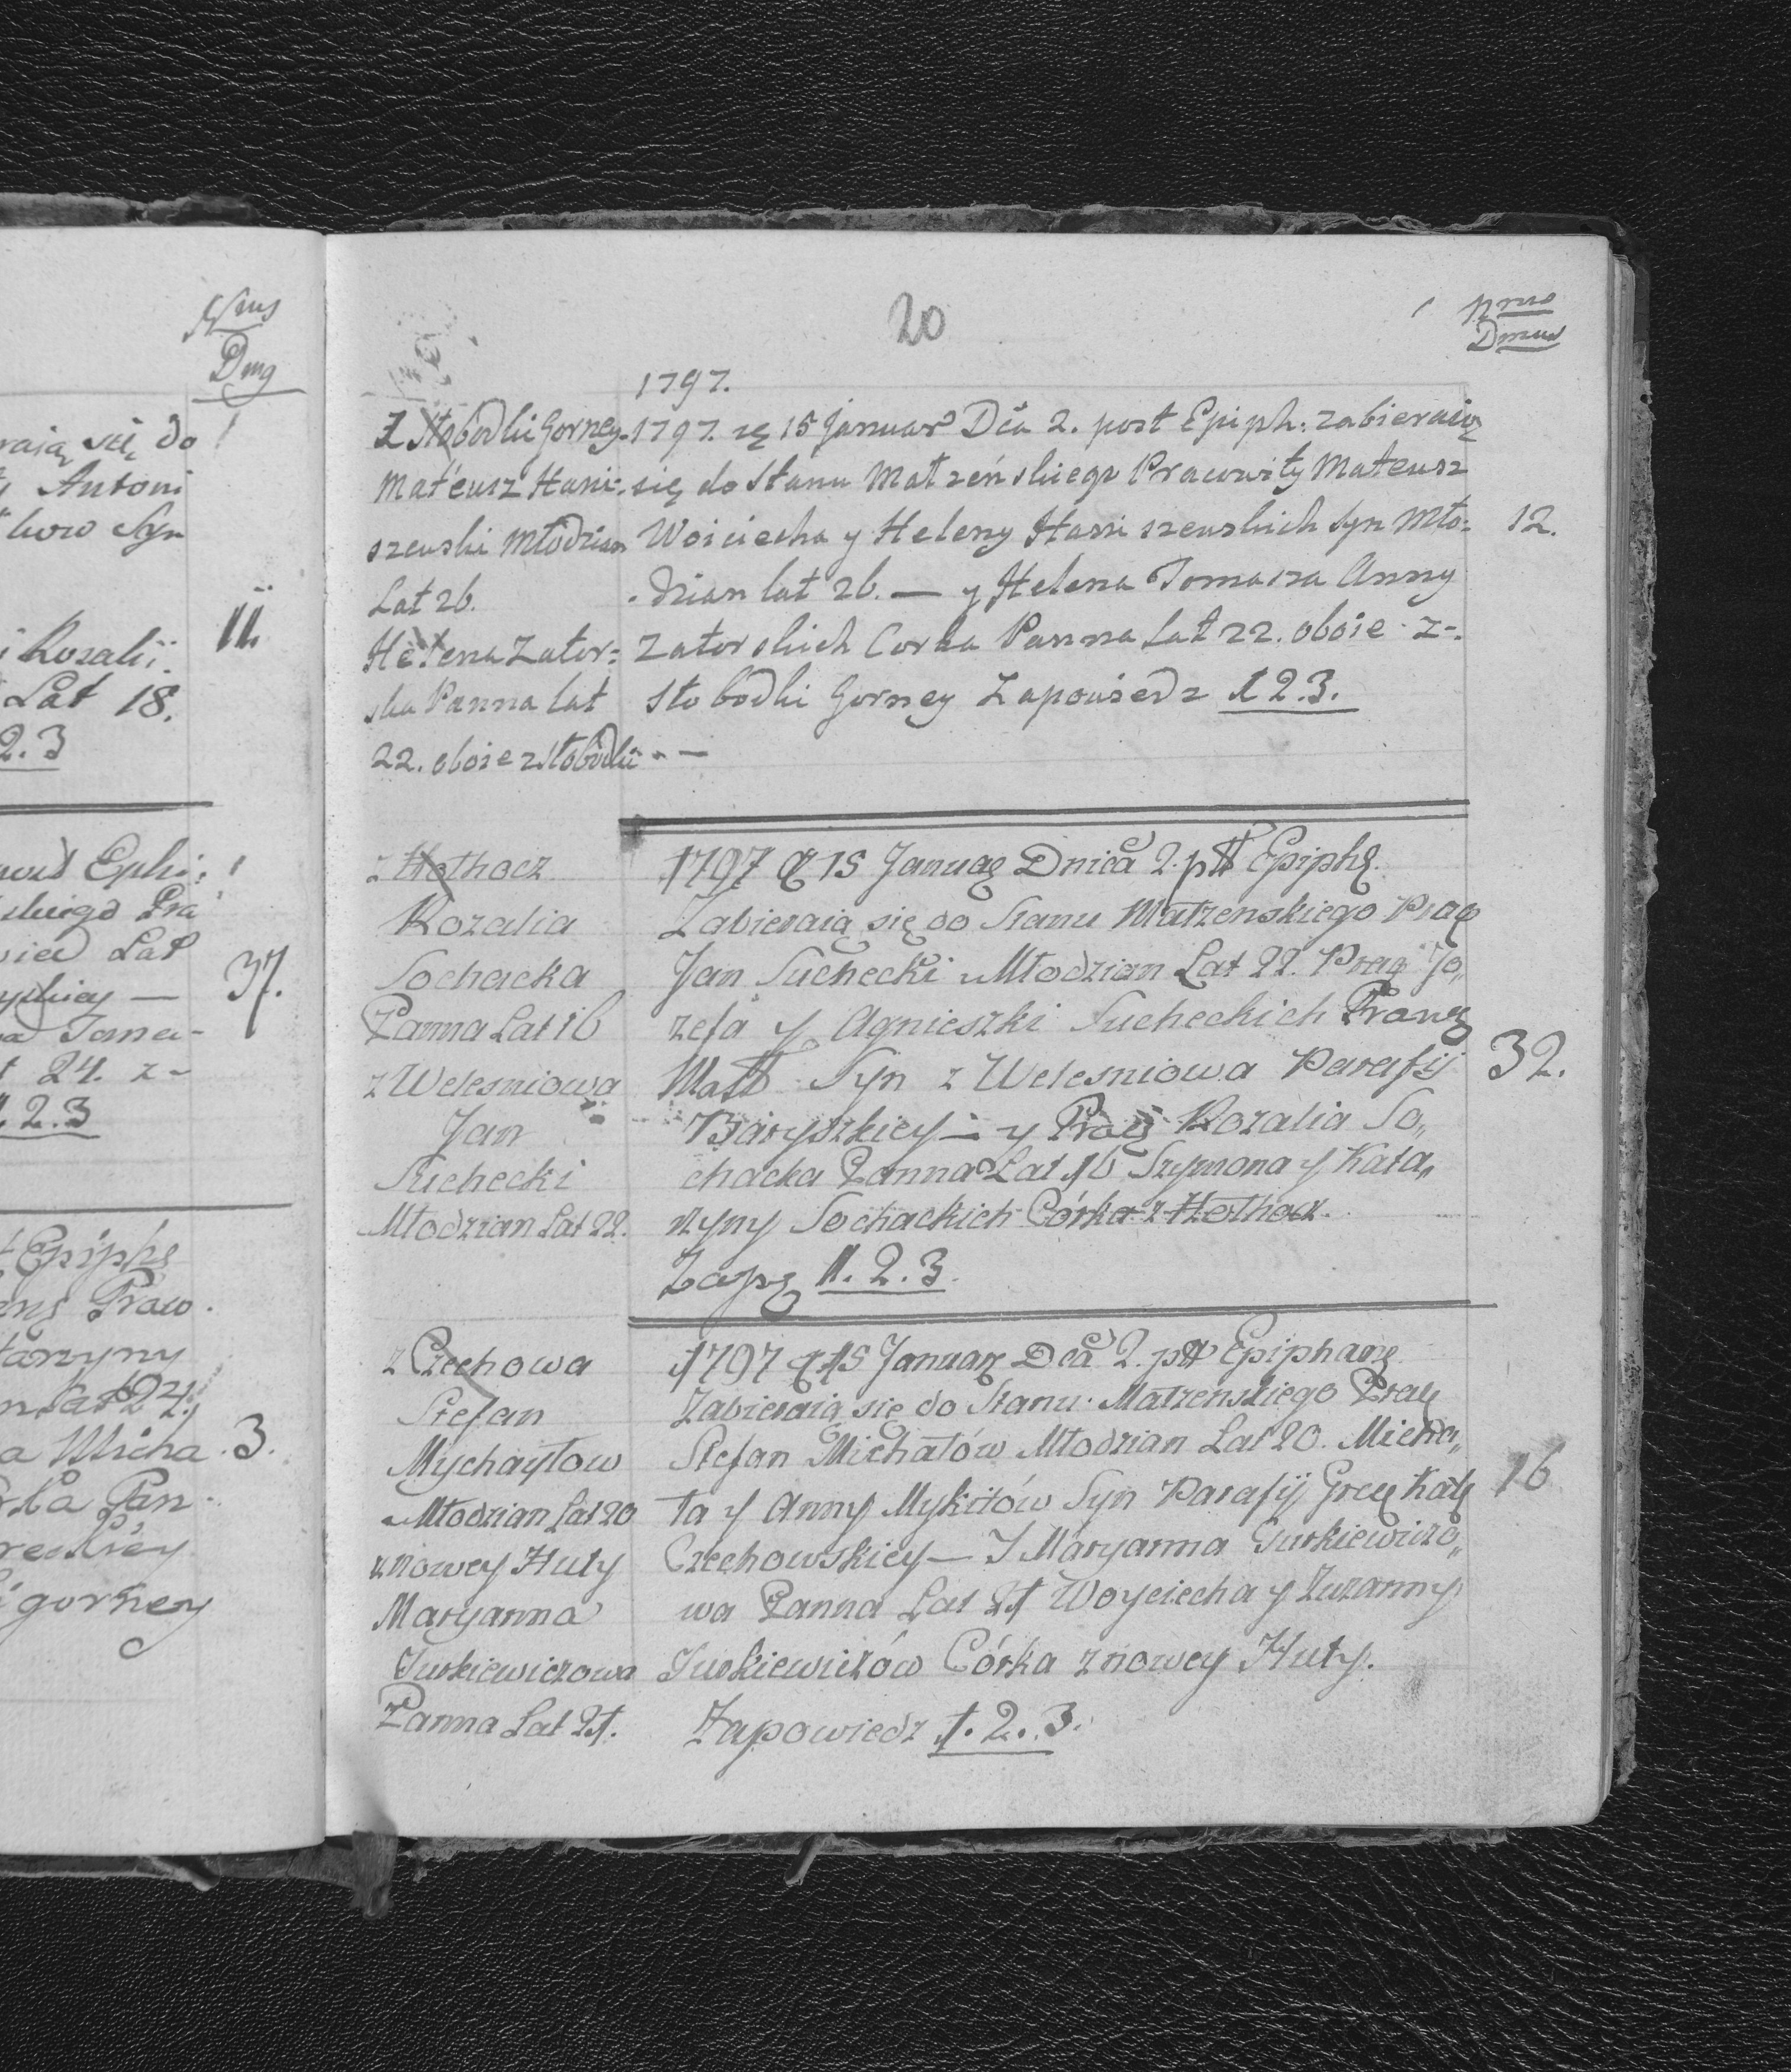 Nrus
Dmg
raią się do
Antoni
kow Syn
11.
i Rozalii
Lat 18.
2.3
37.
Lat
24. z-
1.2.3
Praw.
tarzyny
Lat 24.
3.
gorney
20
Nrus
Dmus
1797.
Z Słobodki Gorney
Mateusz Hani-
szewski Młodzian
Lat 26.
Helena Zator-
ska Panna lat
22. oboie z Słobodki - -
1797. 15 Januar Dca 2. post Epiph: zabieraią
się do Stanu Małzeńskiego Prawowity Mateusz
Woiciecha y Heleny Haniszewskich Syn Mło-
dzian lat 26. — y Helena Tomasza Anny
Zatorskich Corka Panna Lat 22. oboie z-
Słobodki Gorney Zapowiedz 1 2.3.
12.
z Hothocz
Rozalia
Sochacka
Panna Lat 16
z Welesniowa
Jan
Suchecki
Młodzian Lat 22.
1797 15 Januar Dnica 2. pst Epiph
Zabieraią się do Stanu Małzenskiego Praw
Jan Suchecki Młodzian Lat 22. Praw Jo,,
zefa y Agnieszki Sucheckich Praw
Małż Syn z Welesniowa Parafij
Baryszkiey — y Praw Rozalia So,,
chacka Panna Lat 16 Szymona y Kata,,
rzyny Sochackich Córka z Hothocz.
Zap 1. 2. 3.
32.
z Czechowa
Stefan
Mychayłow
Młodzian Lat 20
z nowey Huty
Maryanna
Jurkiewiczowa
Panna Lat 21.
1797 15 Januar Dca 2. pst Epiphan
Zabieraią się do Stanu Małzenskiego Praw
Stefan Michałów Młodzian Lat 20. Micha,,
ła y Anny Mykitów Syn Parafij Grec Kat
Czechowskiey — I Maryanna Jurkiewiczo,,
wa Panna Lat 21 Woyciecha y Zuzanny
Jurkiewiczów Córka z nowey Huty.
Zapowiedz 1. 2. 3.
16